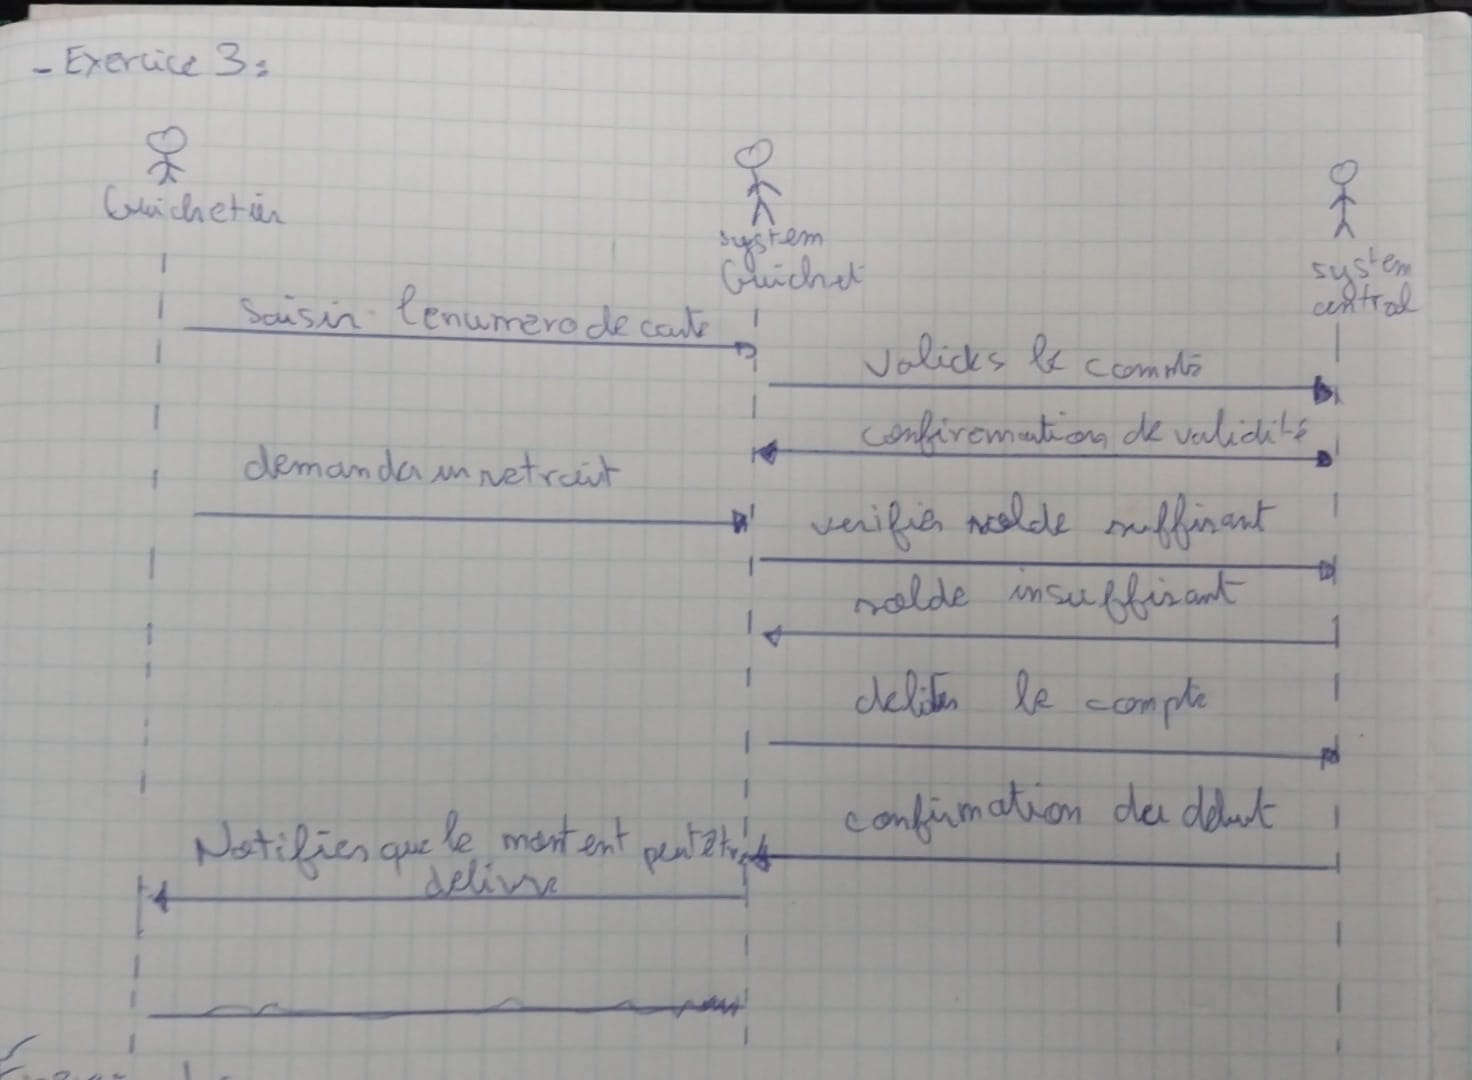 - Exercice 3:
Guichetier
system
Guichet
system
central
Saisir le numero de carte
valider le compte
confiremation de validité
demander un retrait
verifier solde suffisant
solde insuffisant
debiter le compte
confirmation du debut
Notifier que le montent peut être
delivre